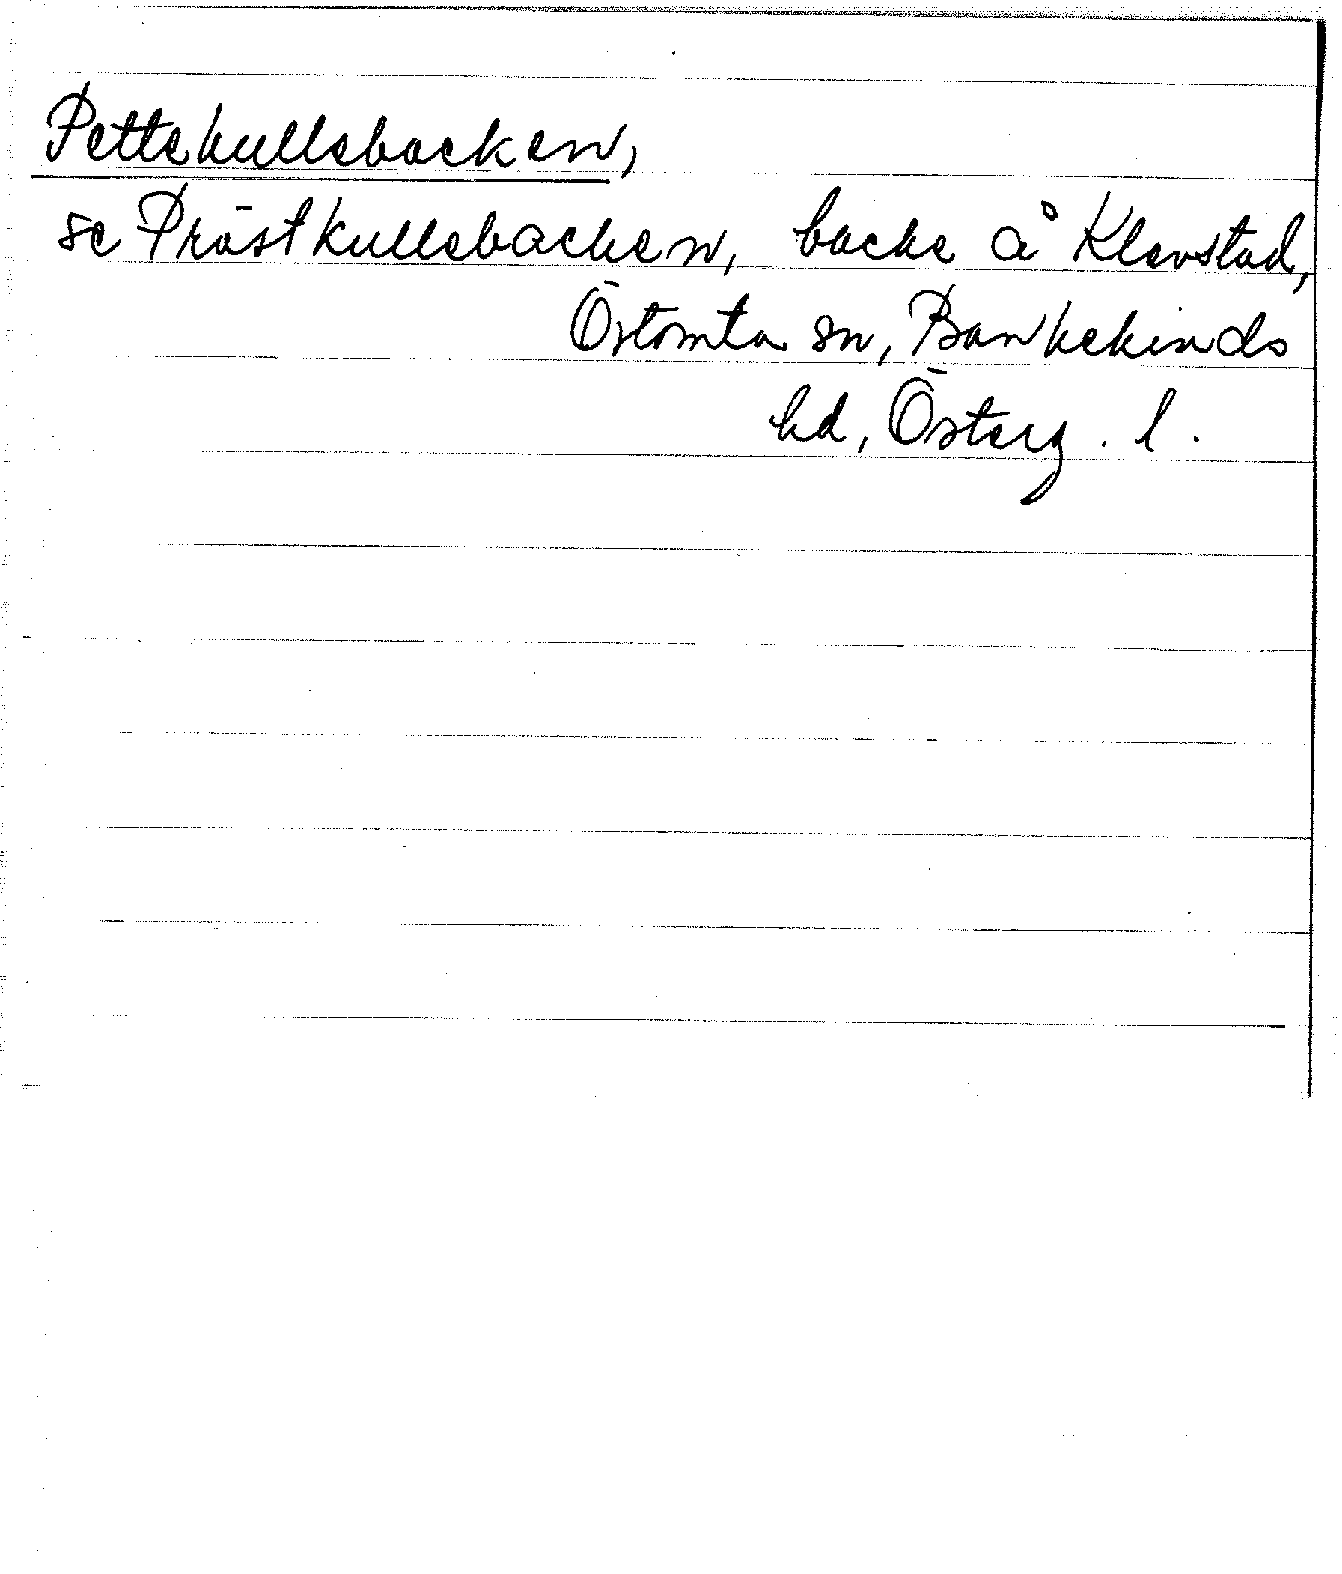 Pettekullsbacken,
se Prästkullsbacken, backe å Klevstad,
Örtomta sn, Bankekinds
hd, Österg. l.